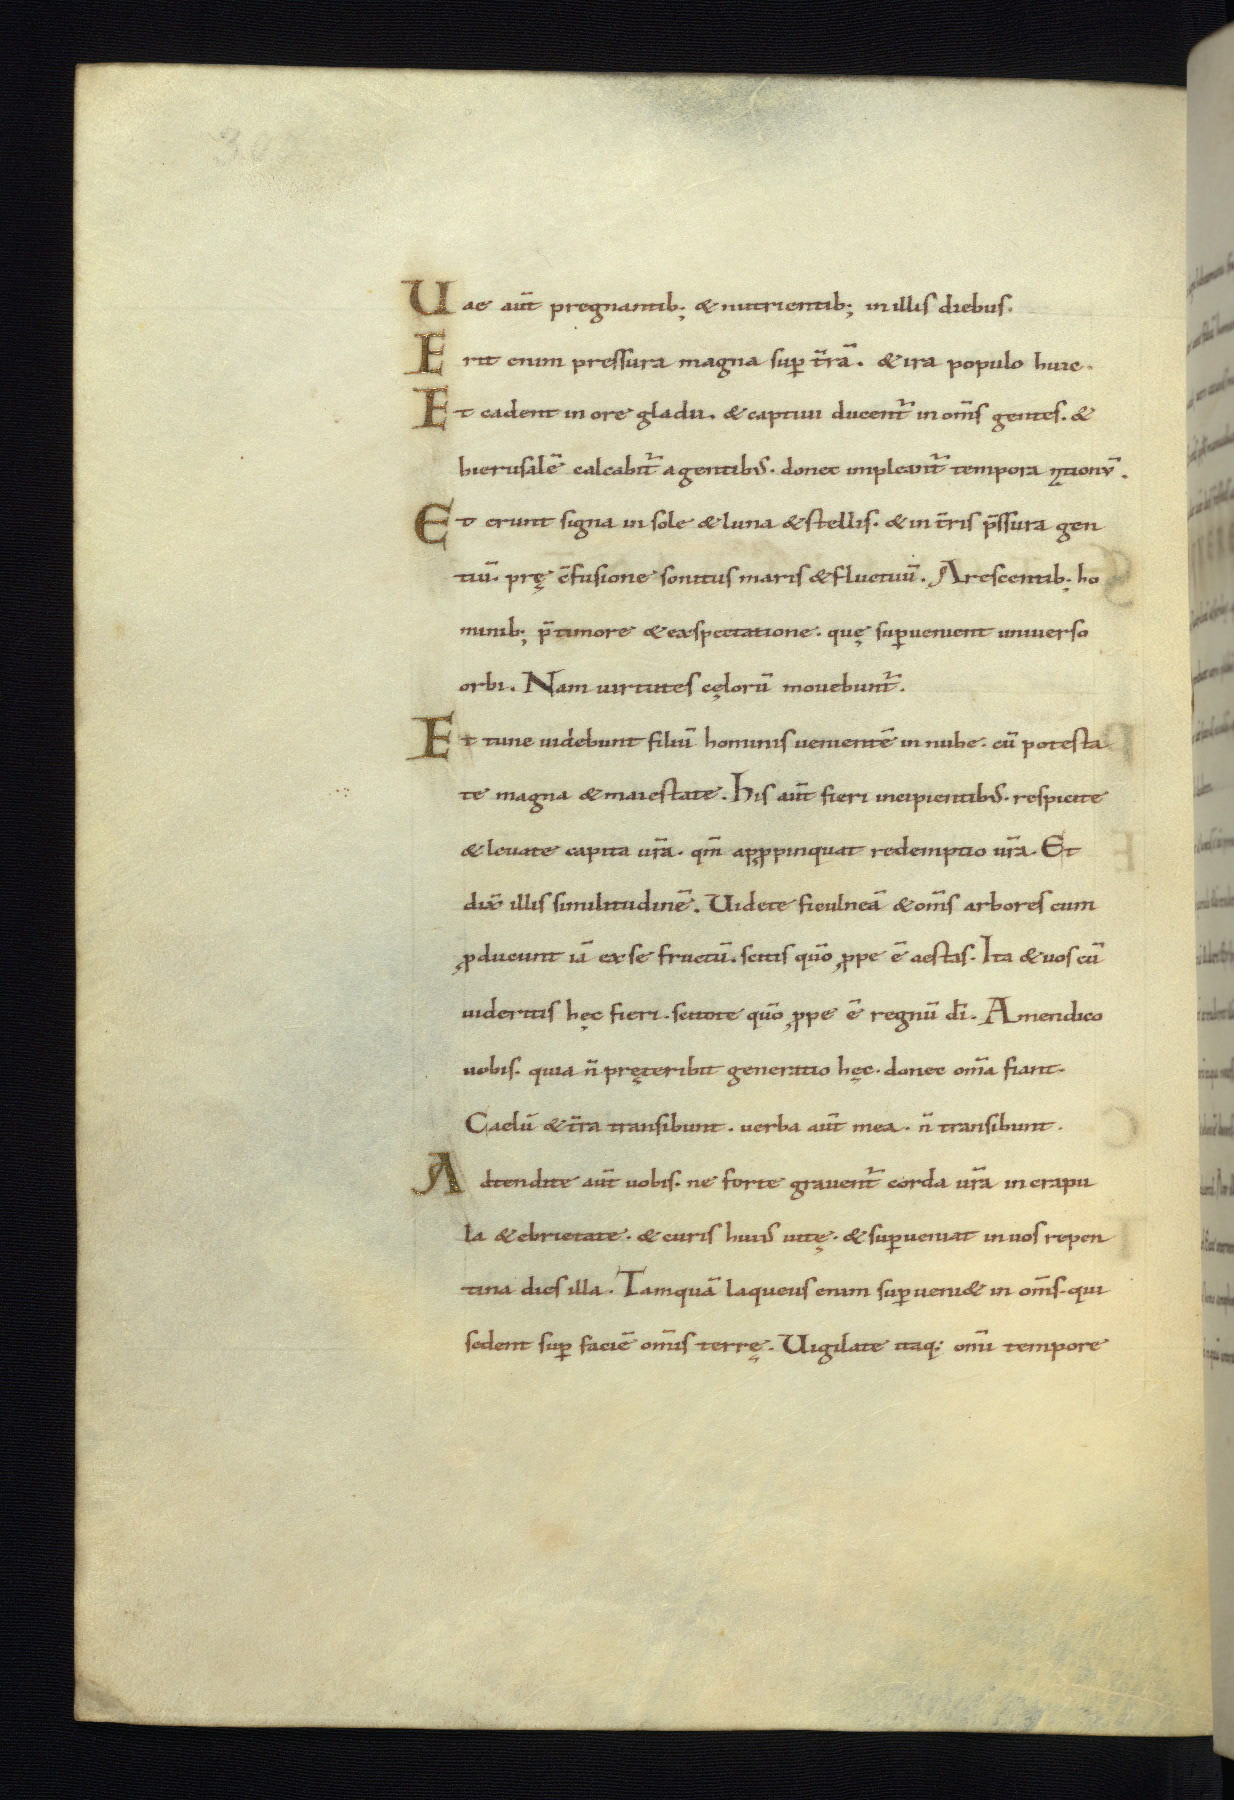 Uae aut̄ pregnantib; & nutrientib; in illis diebus.
Erit enim pressura magna sup̄ t̄rā. & ira populo huic.
Et cadent in ore gladii. & captiui ducent̄ in om̄s gentes. &
hierusalē calcabit̄ a gentib᾽. donec impleant̄ tempora nationū.
Et erunt signa in sole & luna & stellis. & in t̄ris p̄ssura gen
tiū. prę c̄fusione sonitus maris & fluctuū. Arescentib; ho
minib; p̄ timore & exspectatione. quę sup̄uenient uniuerso
orbi. Nam uirtutes cęlorū mouebunt̄.
Et tunc uidebunt filiū hominis uenientē in nube. cū potesta
te magna & maiestate. His aut̄ fieri incipientib᾽. respicite
& leuate capita ur̄a. qm̄ apꝓpinquat redemptio ur̄a. Et
dix̄ illis similitudinē. Uidete ficulneā & om̄s arbores cum
ꝓducunt iā ex se fructū. scitis quō ꝓpe ē aestas. Ita & uos cū
uideritis hęc fieri. scitote quō ꝓpe ē regnū dī. Amen dico
uobis. quia n̄ pręteribit generatio hęc. donec om̄a fiant.
Caelū & t̄ra transibunt. uerba aut̄ mea. n̄ transibunt.
Adtendite aut̄ uobis. ne forte grauent̄ corda ur̄a in crapu
la & ebrietate. & curis hui᾽ uitę. & sup̄ueniat in uos repen
tina dies illa. Tamquā laqueus enim sup̄ueni& in om̄s. qui
sedent sup̄ faciē om̄is terrę. Uigilate itaq; om̄i tempore